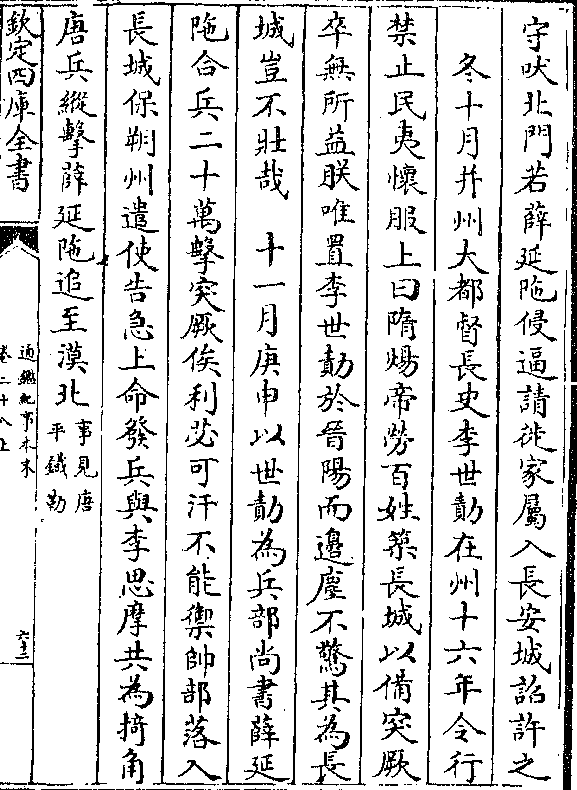 守吠北門若薛延陁侵逼請徙家屬入長安城詔許之
冬十月并州大都督長史李世勣在州十六年令行
禁止民夷懷服上曰隋煬帝勞百姓築長城以備突厥
卒無所益朕唯置李世勣於晉陽而邊塵不驚其為長
城豈不壯哉　十一月庚申以世勣為兵部尚書薛延
陁合兵二十萬擊突厥俟利苾可汗不能禦帥部落入
長城保朔州遣使告急上命發兵與李思摩共為掎角
唐兵縱擊薛延陁追至漠北事見唐
平鐵勒
欽定四庫全書
通鑑紀事本末
卷二十八上
六十二